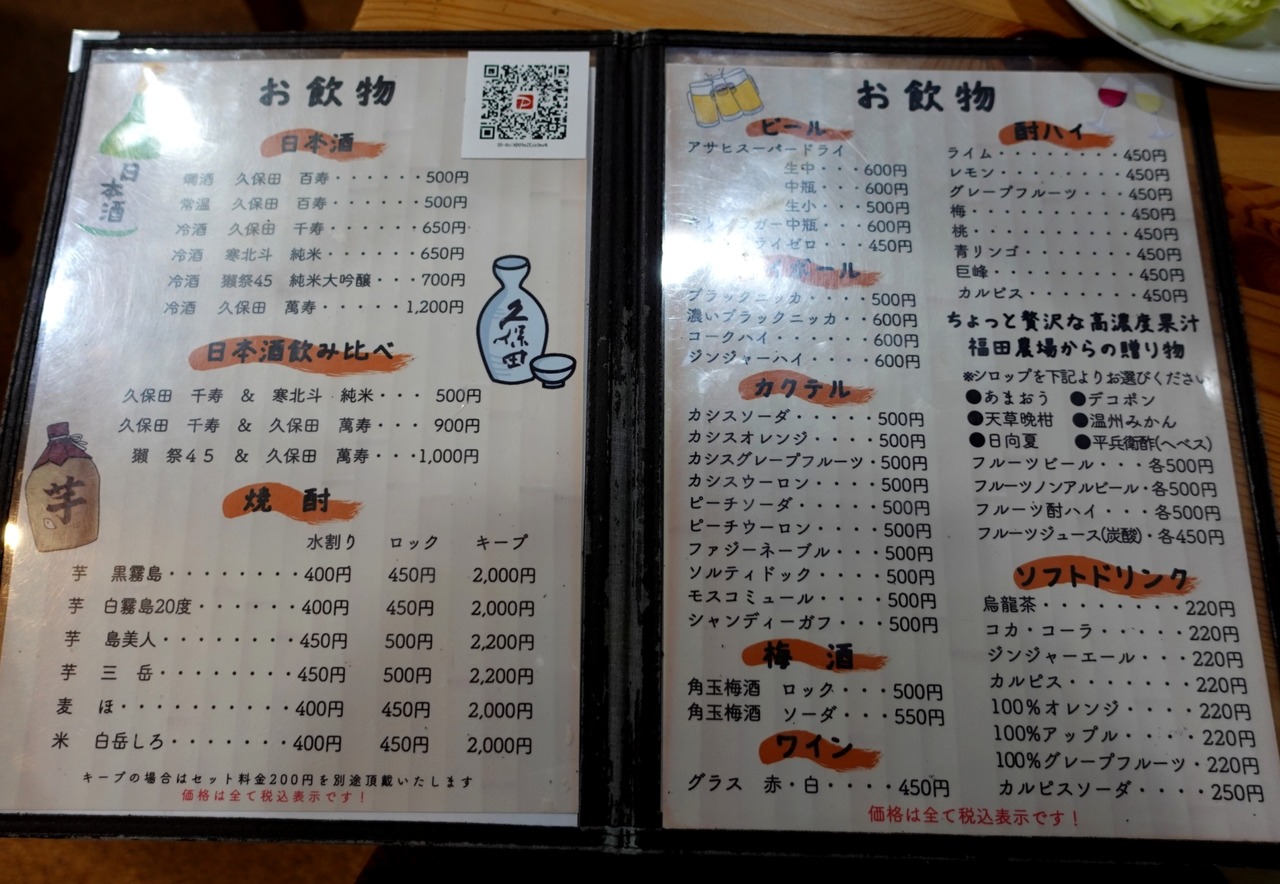 お飲物
日本酒
日本酒
燗酒 久保田 百寿・・・・・・500円
常温 久保田 百寿・・・・・・500円
冷酒 久保田 千寿・・・・・・650円
冷酒 寒北斗 純米・・・・・・650円
冷酒 獺祭45 純米大吟醸・・・700円
冷酒 久保田 萬寿・・・・・1,200円
久保田
日本酒飲み比べ
久保田 千寿 & 寒北斗 純米・・・500円
久保田 千寿 & 久保田 萬寿・・・900円
獺 祭45 & 久保田 萬寿・・・1,000円
芋
焼 酎
水割り ロック キープ
芋 黒霧島・・・・・・・・400円 450円 2,000円
芋 白霧島20度・・・・・・400円 450円 2,000円
芋 島美人・・・・・・・・450円 500円 2,200円
芋 三 岳・・・・・・・・450円 500円 2,200円
麦 ほ・・・・・・・・・・400円 450円 2,000円
米 白岳しろ・・・・・・・400円 450円 2,000円
キープの場合はセット料金200円を別途頂戴いたします
価格は全て税込表示です!
お飲物
ビール
アサヒスーパードライ
生中・・・600円
中瓶・・・600円
生小・・・500円
中瓶・・・600円
ライゼロ・・・450円
ボール
ブラックニッカ・・・・500円
濃いブラックニッカ・・600円
コークハイ・・・・・・600円
ジンジャーハイ・・・・600円
カクテル
カシスソーダ・・・・・500円
カシスオレンジ・・・・500円
カシスグレープフルーツ・500円
カシスウーロン・・・・500円
ピーチソーダ・・・・・500円
ピーチウーロン・・・・500円
ファジーネーブル・・・500円
ソルティドック・・・・500円
モスコミュール・・・・500円
シャンディーガフ・・・500円
梅 酒
角玉梅酒 ロック・・・500円
角玉梅酒 ソーダ・・・550円
ワイン
グラス 赤・白・・・・450円
酎ハイ
ライム・・・・・・・・450円
レモン・・・・・・・・450円
グレープフルーツ・・・450円
梅・・・・・・・・・・450円
桃・・・・・・・・・・450円
青リンゴ・・・・・・・450円
巨峰・・・・・・・・・450円
カルピス・・・・・・・450円
ちょっと贅沢な高濃度果汁
福田農場からの贈り物
※シロップを下記よりお選びください
●あまおう ●デコポン
●天草晩柑 ●温州みかん
●日向夏 ●平兵衛酢(ヘベス)
フルーツビール・・・各500円
フルーツノンアルビール・各500円
フルーツ酎ハイ・・・各500円
フルーツジュース(炭酸)・各450円
ソフトドリンク
烏龍茶・・・・・・・・220円
コカ・コーラ・・・・・220円
ジンジャーエール・・・220円
カルピス・・・・・・・220円
100%オレンジ・・・・220円
100%アップル・・・・220円
100%グレープフルーツ・220円
カルピスソーダ・・・・250円
価格は全て税込表示です!